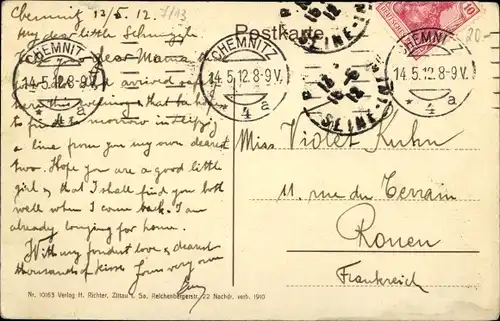 Chemnitz 13/5. 12.
Postkarte
My dear little
dear Mama
arrived
here this evening, that to h
to morrow in
a line from you my own dearest
two. Hope you are a good little
girl & that I shall find you both
well when I come back. I am
already longing for home.
With my fondest love & dearest
thousands of kisses Yours very own
Miss Violet Kuhn
11 rue du Terrain
Rouen
Frankreich
CHEMNITZ
14.5.12.8-9V.
* 4 a
CHEMNITZ
14.5.12.8-9V.
* 4 a
CHEMNITZ
14.5.12.8-9V.
* 4 a
SEINE-IN
SEINE-IN
DEUTSCHES
10
20-
Nr. 10163 Verlag H. Richter, Zittau i. Sa. Reichenbergerstr. 22 Nachdr. verb. 1910